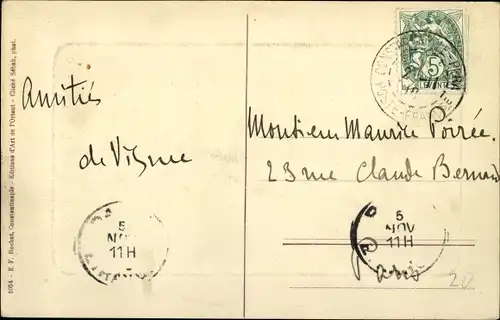 1054 - E. F. Rochat, Constantinople - Editions d'Art de l'Orient - Cliché Sébah, phot.
Amitiés
de Vigne
5
LEVANT
Monsieur Maurice Poirée
23 rue Claude Bernard
Paris
5
NOV
11H
5
NOV
11H
20